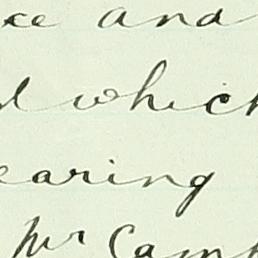 and
which
earing
Mr Cam